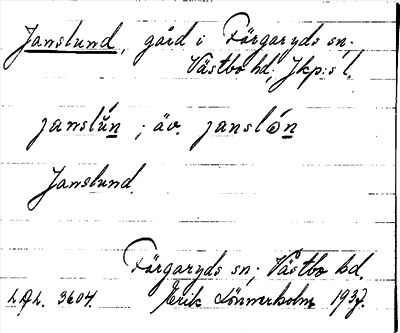 Janslund, gård i Färgaryds sn;
Västbo hd; Jkp:s l.
janslún ; äv. janslón
Janslund.
Färgaryds sn; Västbo hd.
L.A.L. 3604. Erik Lönnerholm 1937.